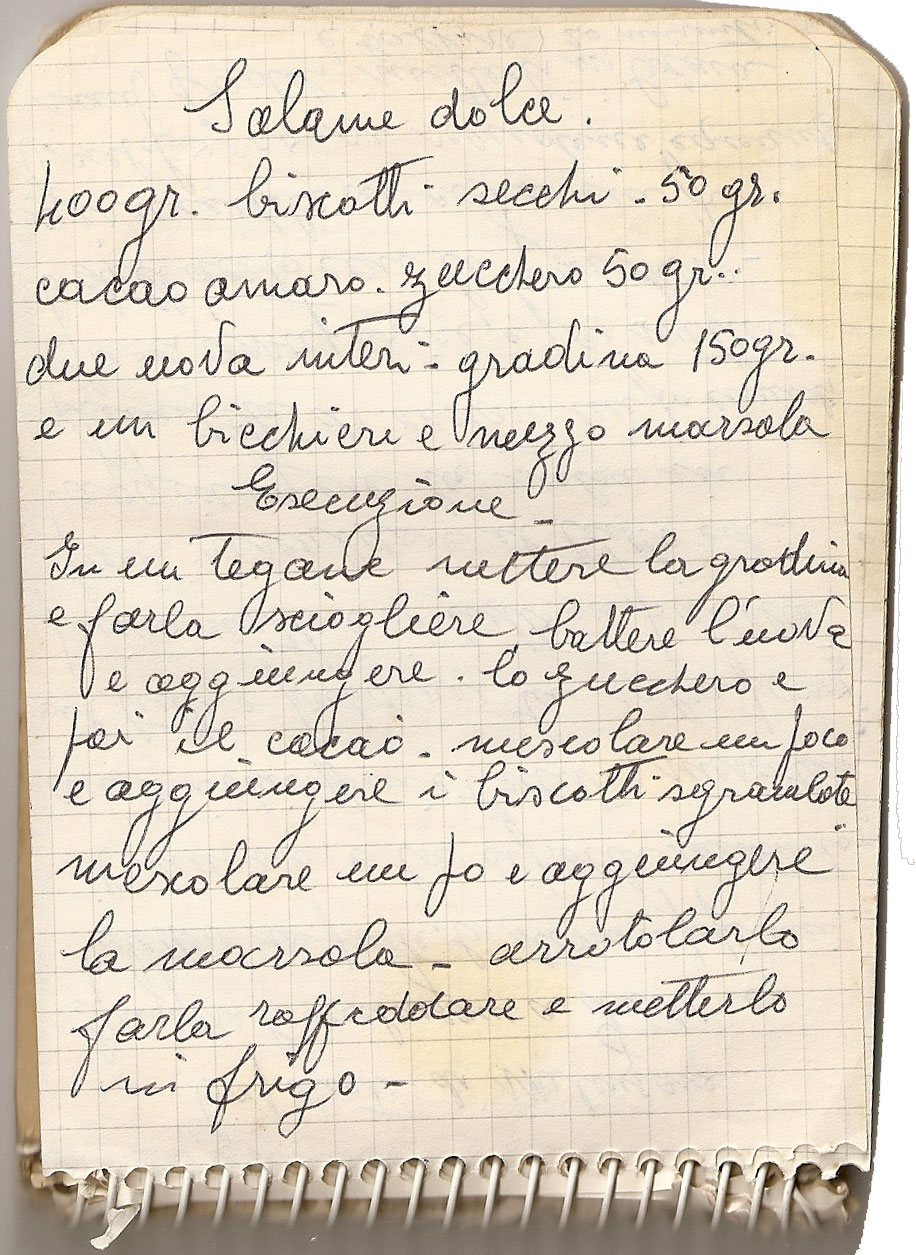 Salame dolce.
400gr. biscotti secchi - 50 gr.
cacao amaro. zucchero 50 gr..
due uova interi - gradina 150gr.
e un bicchiere e mezzo marsala
Esecuzione -
In un tegame mettere la gradina
e farla sciogliere, battere l'uova
e aggiungere. lo zucchero e
poi il cacao - mescolare un poco
e aggiungere i biscotti sgrambate
mescolare un po e aggiungere
la marsala - arrotolarlo
farla raffreddare e metterlo
in frigo -